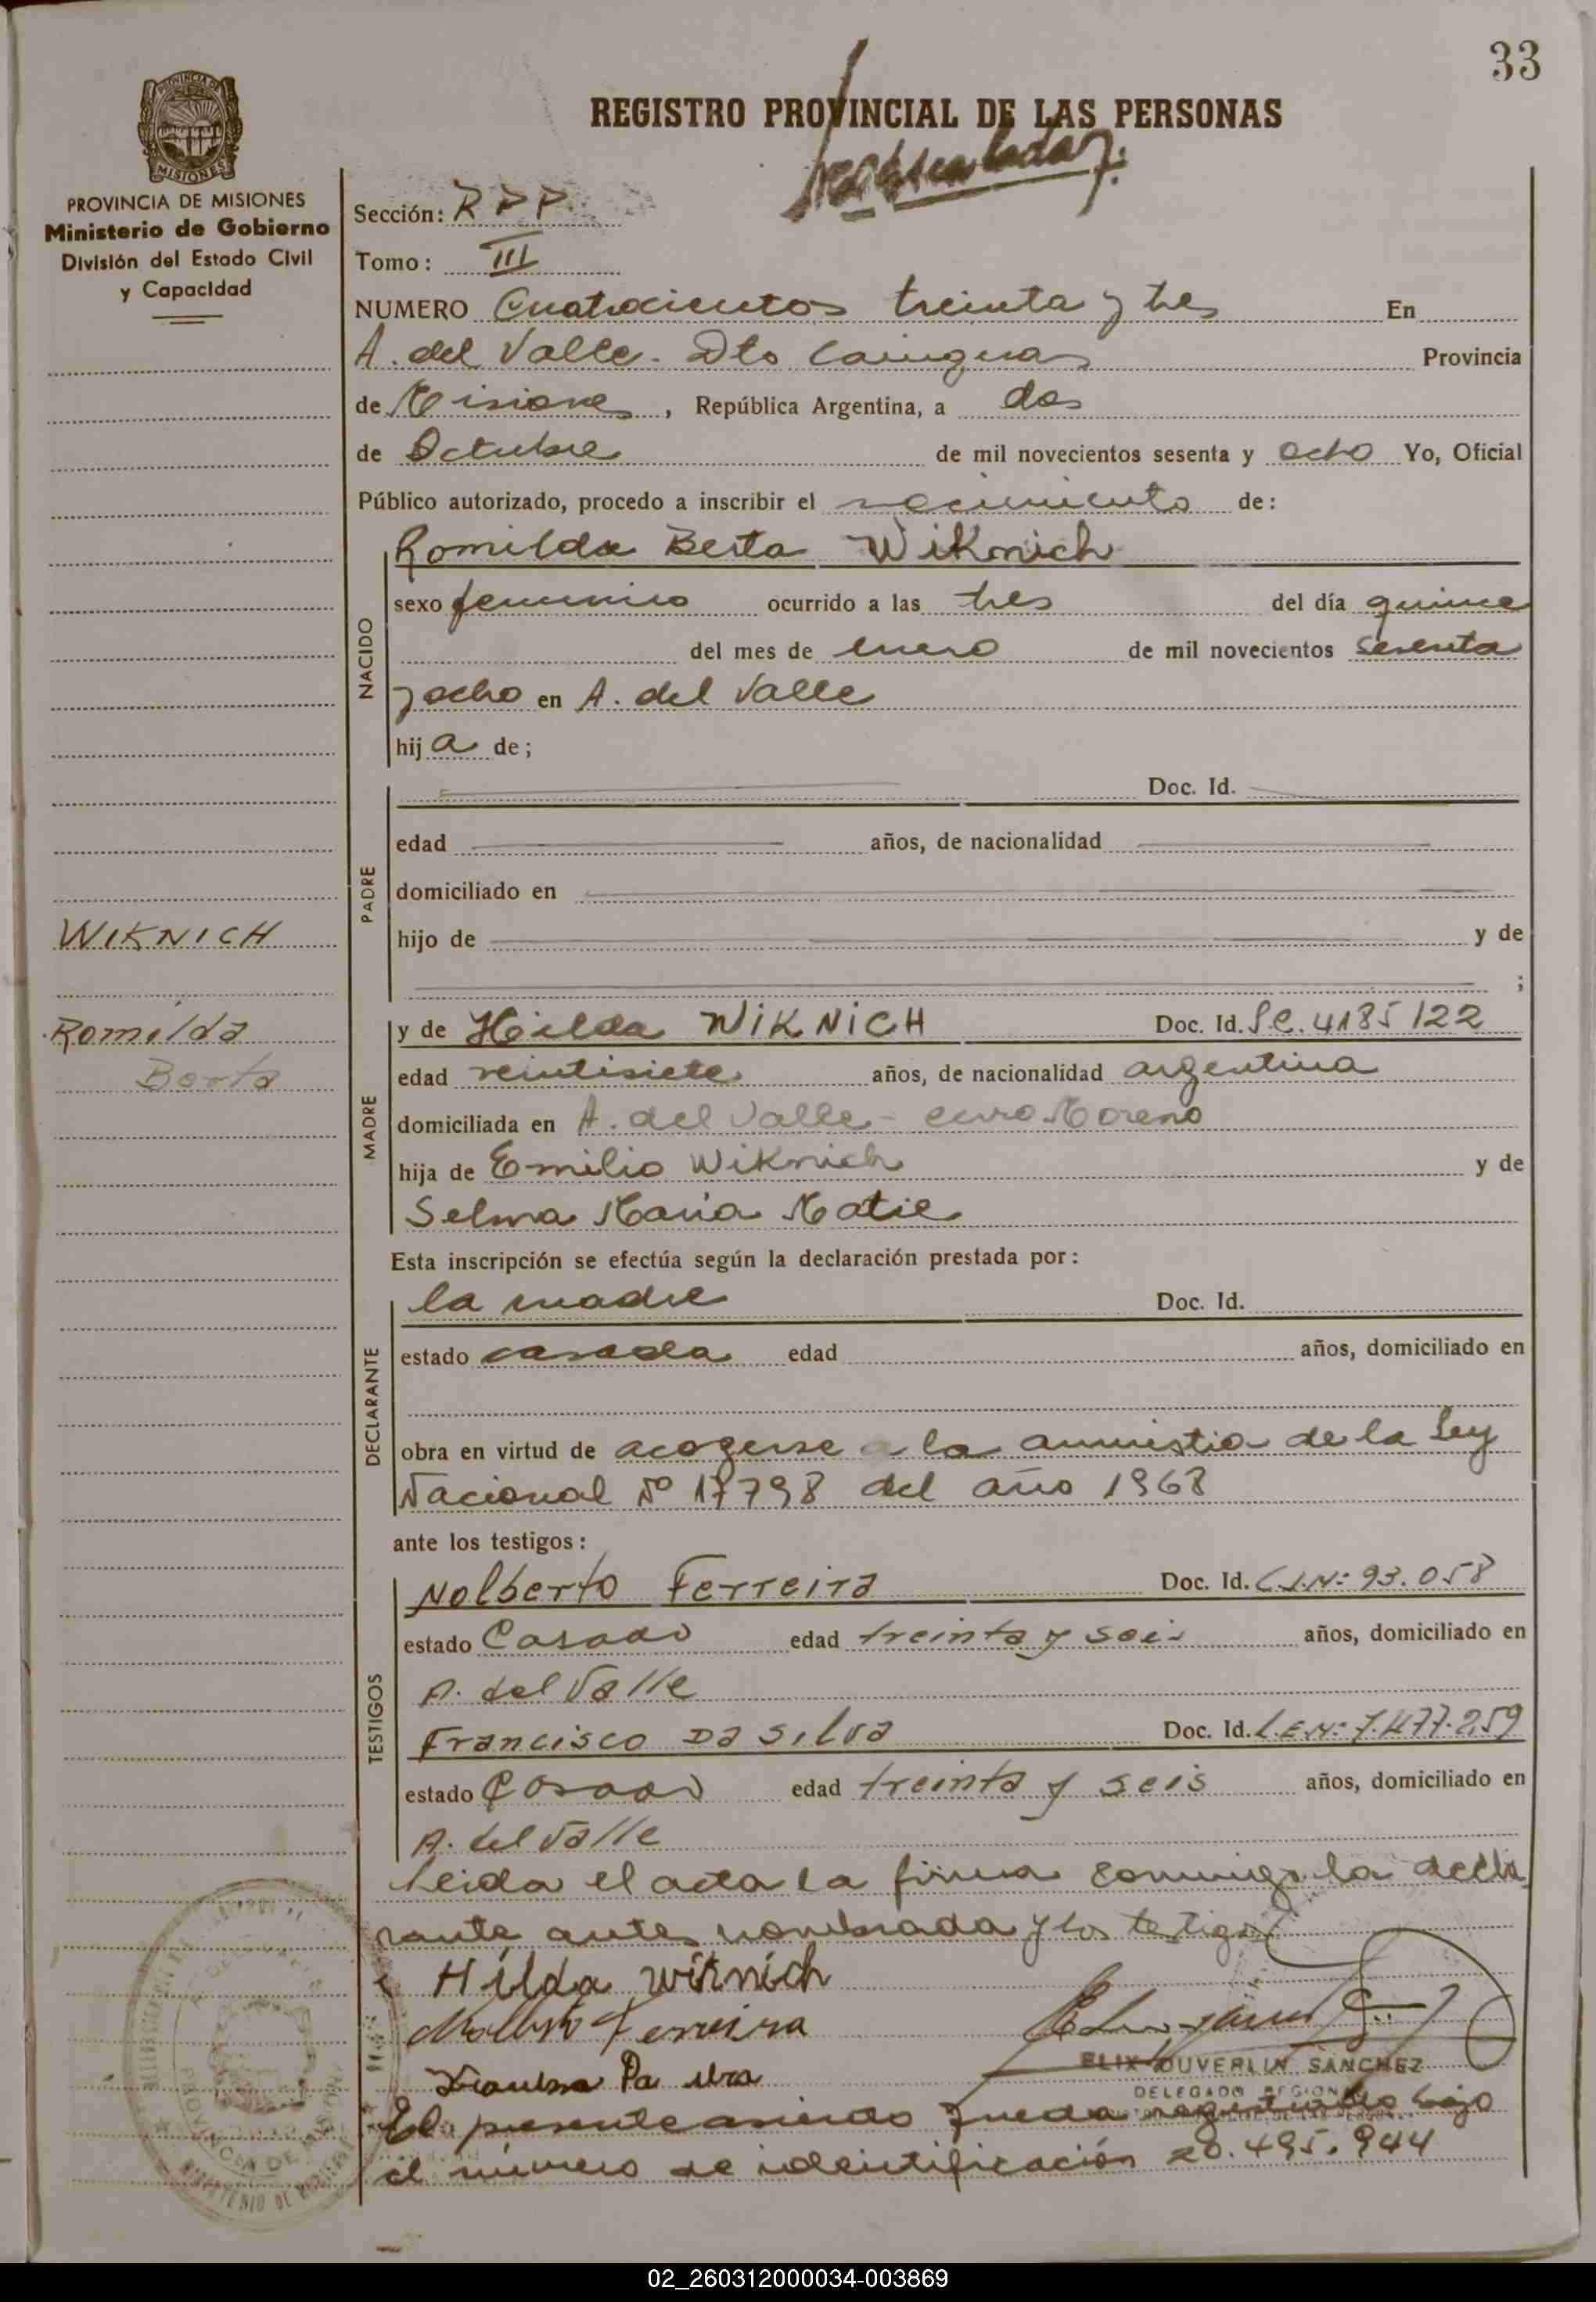 33
REGISTRO PROVINCIAL DE LAS PERSONAS
MISIONES
PROVINCIA DE MISIONES
Ministerio de Gobierno
División del Estado Civil
y Capacidad
Sección: RPP
Tomo: III
NUMERO Cuatrocientos treinta y tres En
A. del Valle. Dto Cainguas Provincia
de Misiones, República Argentina, a dos
de Octubre de mil novecientos sesenta y ocho Yo, Oficial
Público autorizado, procedo a inscribir el nacimiento de:
NACIDO
Romilda Berta Wiknich
sexo femenino ocurrido a las tres del día quince
del mes de enero de mil novecientos sesenta
y ocho en A. del Valle
hija de;
PADRE
Doc. Id.
edad años, de nacionalidad
domiciliado en
hijo de y de
;
WIKNICH
Romilda
Berta
MADRE
y de Hilda WIKNICH Doc. Id. 4185122
edad veintisiete años, de nacionalidad argentina
domiciliada en A. del Valle - Moreno
hija de Emilio Wiknich y de
Selma Maria Matie
Esta inscripción se efectúa según la declaración prestada por:
DECLARANTE
la madre Doc. Id.
estado casada edad años, domiciliado en
obra en virtud de acogerse a la amnistia de la Ley
Nacional Nº 17798 del año 1968
ante los testigos:
TESTIGOS
Nolberto Ferreira Doc. Id. C.I.Nº: 93.058
estado Casado edad treinta y seis años, domiciliado en
A. del Valle
Francisco Da Silva Doc. Id. L.E.Nº: 7.477.259
estado Casado edad treinta y seis años, domiciliado en
A. del Valle
Leida el acta la firma conmigo la decla
rante antes nombrada y los testigos
Hilda wiknich
Ferreira
ELIX DUVERLIN SANCHEZ
DELEGADO REGIONAL
El presente asiento queda registrado bajo
el número de identificación 20.495.944
PROVINCIA DE MISIONES
02_260312000034-003869